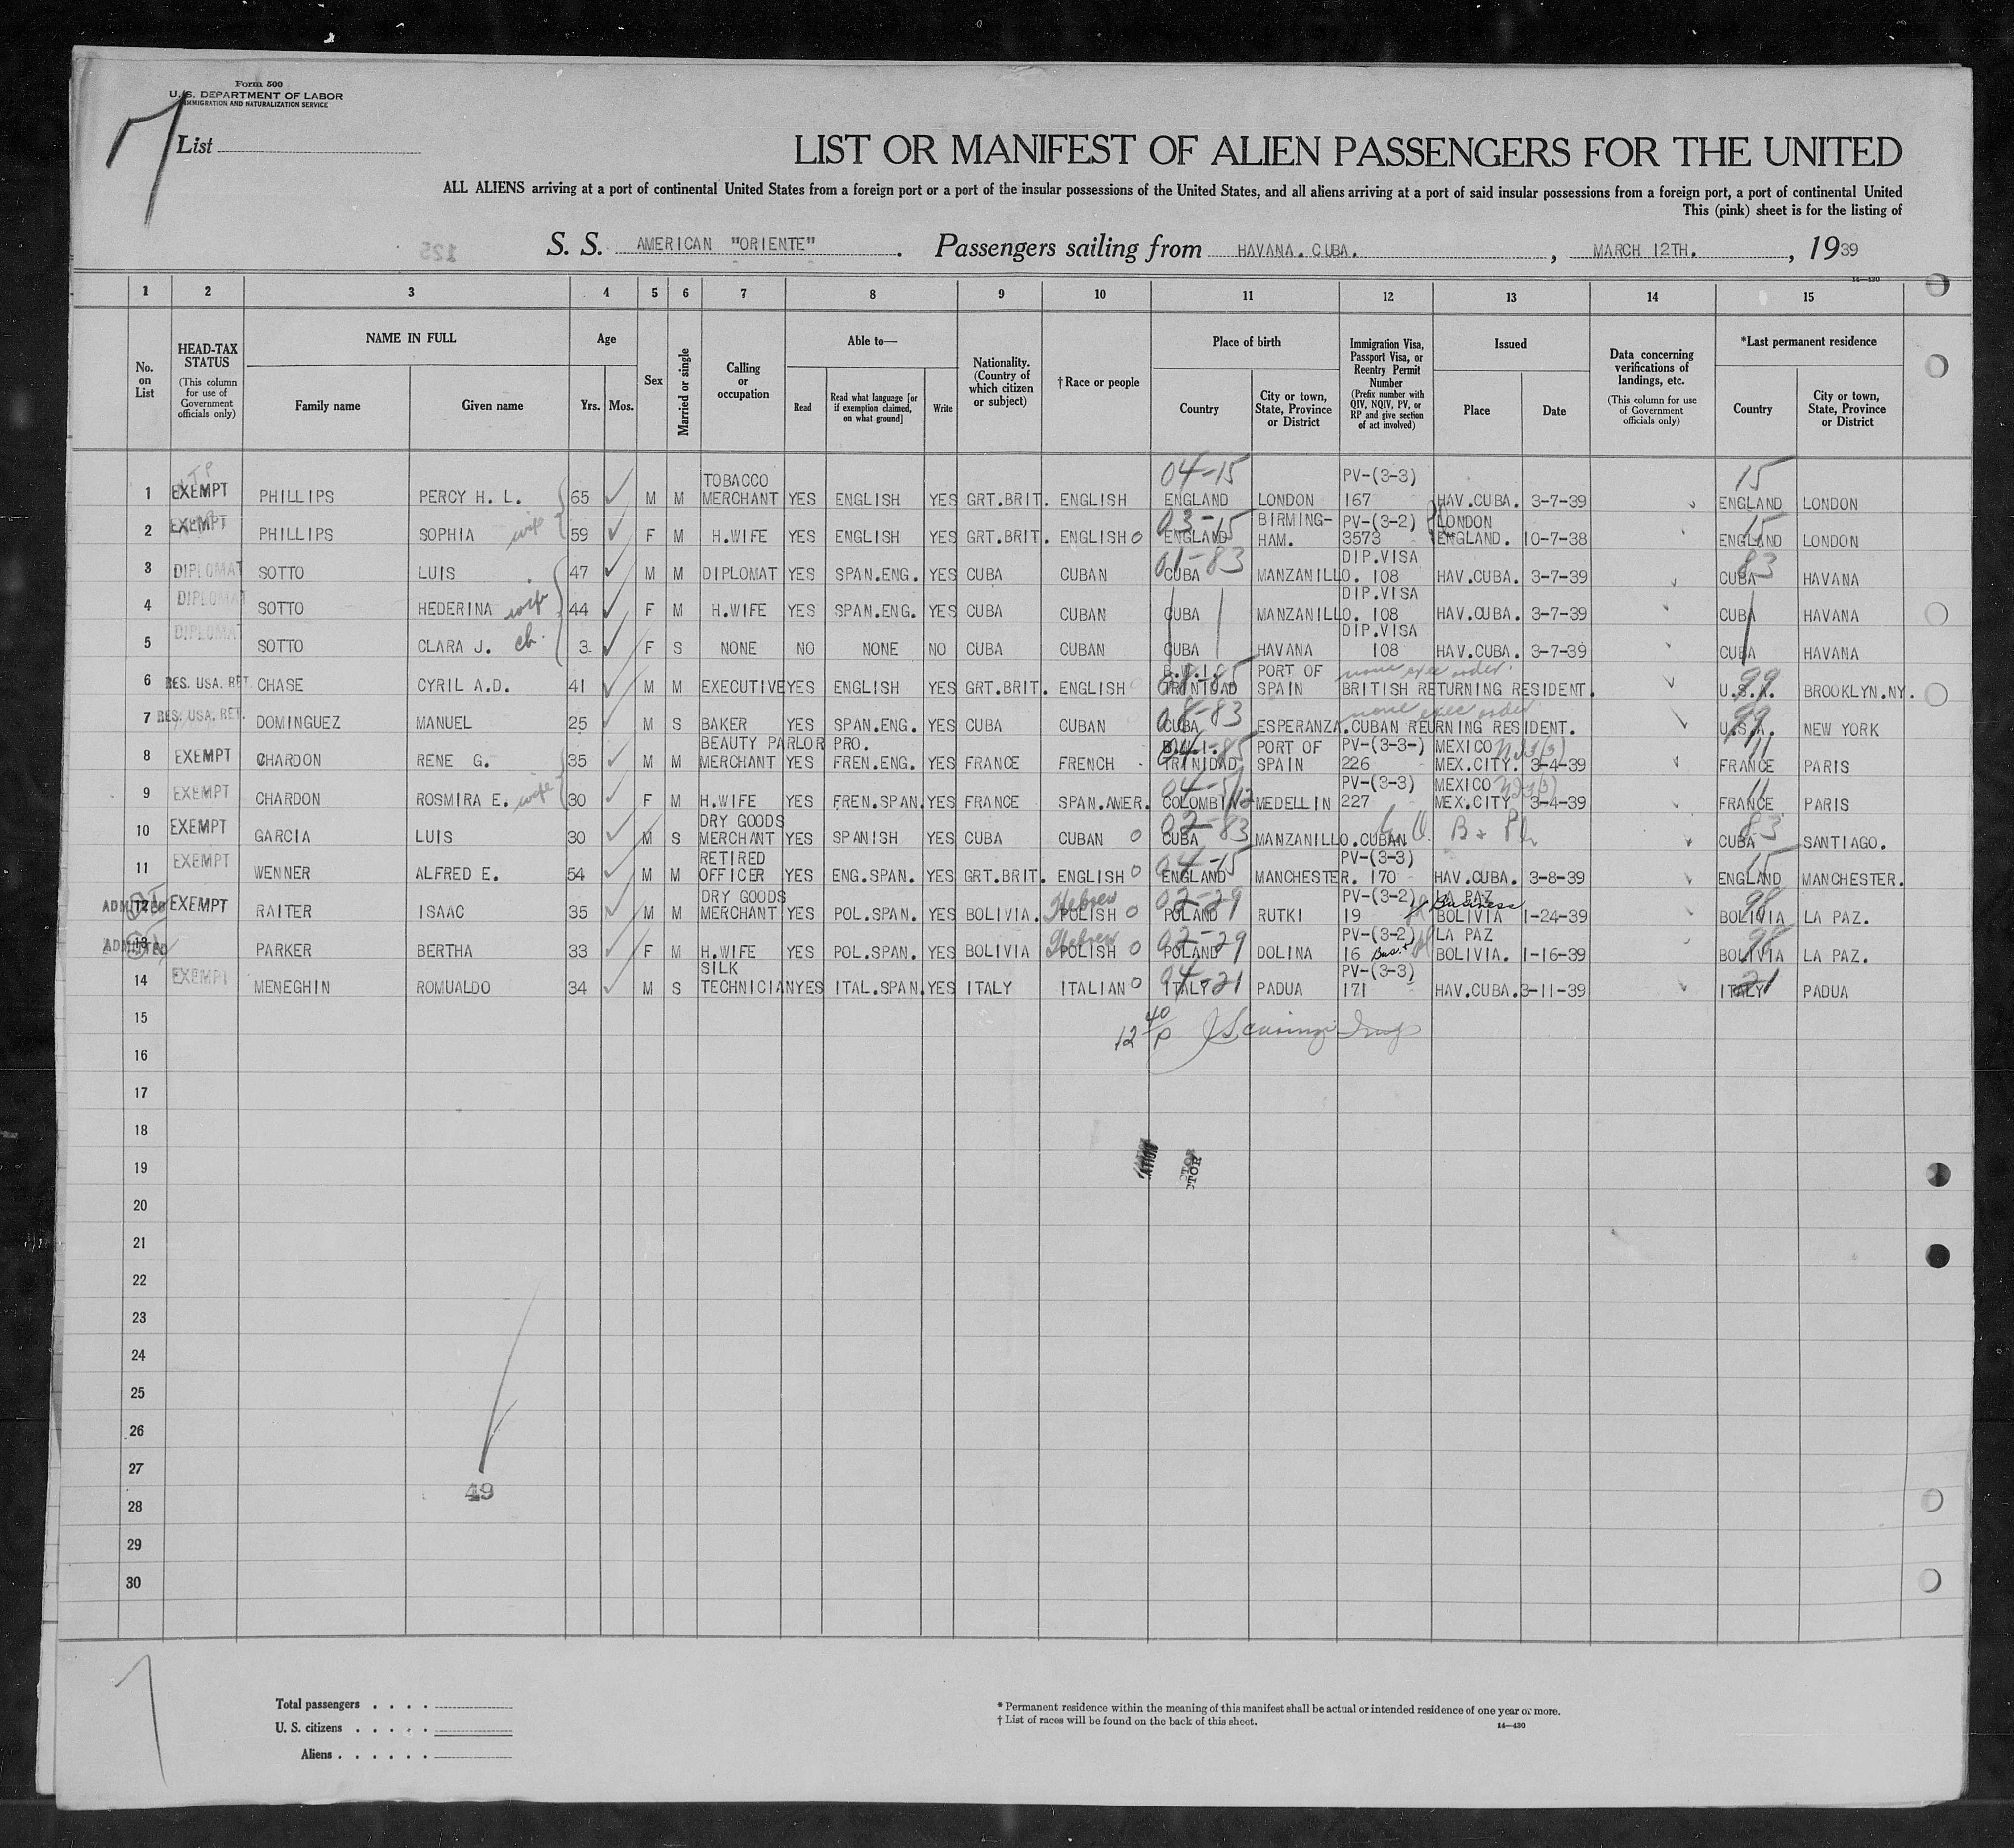 Form 500
U. S. DEPARTMENT OF LABOR
IMMIGRATION AND NATURALIZATION SERVICE
List
LIST OR MANIFEST OF ALIEN PASSENGERS FOR THE UNITED
ALL ALIENS arriving at a port of continental United States from a foreign port or a port of the insular possessions of the United States, and all aliens arriving at a port of said insular possessions from a foreign port, a port of continental United
This (pink) sheet is for the listing of
125
S. S. AMERICAN "ORIENTE". Passengers sailing from HAVANA. CUBA. , MARCH 12TH. , 1939
14—430
1 2 3 4 5 6 7 8 9 10 11 12 13 14 15
No. on List
HEAD-TAX STATUS (This column for use of Government officials only)
NAME IN FULL
Family name
Given name
Age
Yrs. Mos.
Sex
Married or single
Calling or occupation
Able to—
Read
Read what language [or if exemption claimed, on what ground]
Write
Nationality. (Country of which citizen or subject)
† Race or people
Place of birth
Country
City or town, State, Province or District
Immigration Visa, Passport Visa, or Reentry Permit Number (Prefix number with QIV, NQIV, PV, or RP and give section of act involved)
Issued
Place
Date
Data concerning verifications of landings, etc. (This column for use of Government officials only)
*Last permanent residence
Country
City or town, State, Province or District
04-15 15
TOBACCO PV-(3-3)
1 EXEMPT PHILLIPS PERCY H. L. 65 M M MERCHANT YES ENGLISH YES GRT.BRIT. ENGLISH ENGLAND LONDON 167 HAV.CUBA. 3-7-39 ENGLAND LONDON
03-15 BIRMING- PV-(3-2) LONDON 15
2 EXEMPT PHILLIPS SOPHIA wife 59 F M H.WIFE YES ENGLISH YES GRT.BRIT. ENGLISH O ENGLAND HAM. 3573 ENGLAND. 10-7-38 ENGLAND LONDON
01-83 DIP.VISA 83
3 DIPLOMAT SOTTO LUIS 47 M M DIPLOMAT YES SPAN.ENG. YES CUBA CUBAN CUBA MANZANILLO. 108 HAV.CUBA. 3-7-39 CUBA HAVANA
DIP.VISA
4 DIPLOMAT SOTTO HEDERINA wife 44 F M H.WIFE YES SPAN.ENG. YES CUBA CUBAN CUBA MANZANILLO. 108 HAV.CUBA. 3-7-39 CUBA HAVANA
DIP.VISA
5 DIPLOMAT SOTTO CLARA J. ch. 3 F S NONE NO NONE NO CUBA CUBAN CUBA HAVANA 108 HAV.CUBA. 3-7-39 CUBA HAVANA
B.W.I. PORT OF none exec order. 99
6 RES. USA. RET. CHASE CYRIL A.D. 41 M M EXECUTIVE YES ENGLISH YES GRT.BRIT. ENGLISH TRINIDAD SPAIN BRITISH RETURNING RESIDENT. U.S.A. BROOKLYN.NY.
08-83 none exec order 99
7 RES. USA. RET. DOMINGUEZ MANUEL 25 M S BAKER YES SPAN.ENG. YES CUBA CUBAN CUBA ESPERANZA. CUBAN REURNING RESIDENT. U.S.A. NEW YORK
BEAUTY PARLOR PRO. B.W.I. PORT OF PV-(3-3-) MEXICO 11
8 EXEMPT CHARDON RENE G. 35 M M MERCHANT YES FREN.ENG. YES FRANCE FRENCH TRINIDAD SPAIN 226 MEX.CITY. 3-4-39 FRANCE PARIS
PV-(3-3) MEXICO 11
9 EXEMPT CHARDON ROSMIRA E. wife 30 F M H.WIFE YES FREN.SPAN. YES FRANCE SPAN.AMER. COLOMBIA MEDELLIN 227 MEX.CITY 3-4-39 FRANCE PARIS
DRY GOODS 02-83 83
10 EXEMPT GARCIA LUIS 30 M S MERCHANT YES SPANISH YES CUBA CUBAN O CUBA MANZANILLO. CUBAN CUBA SANTIAGO.
RETIRED 04-15 PV-(3-3) 15
11 EXEMPT WENNER ALFRED E. 54 M M OFFICER YES ENG.SPAN. YES GRT.BRIT. ENGLISH O ENGLAND MANCHESTER. 170 HAV.CUBA. 3-8-39 ENGLAND MANCHESTER.
DRY GOODS Hebrew 02-29 PV-(3-2) LA PAZ Business 98
ADMITTED 12 EXEMPT RAITER ISAAC 35 M M MERCHANT YES POL.SPAN. YES BOLIVIA. POLISH O POLAND RUTKI 19 BOLIVIA 1-24-39 BOLIVIA LA PAZ.
Hebrew 02-29 PV-(3-2) LA PAZ 98
ADMITTED 13 PARKER BERTHA 33 F M H.WIFE YES POL.SPAN. YES BOLIVIA POLISH O POLAND DOLINA 16 Bus. BOLIVIA. 1-16-39 BOLIVIA LA PAZ.
SILK 04-21 PV-(3-3) 21
14 EXEMPT MENEGHIN ROMUALDO 34 M S TECHNICIAN YES ITAL.SPAN. YES ITALY ITALIAN O ITALY PADUA 171 HAV.CUBA. 3-11-39 ITALY PADUA
15
12 40 P
16
17
18
19
20
21
22
23
24
25
26
27
49
28
29
30
Total passengers . . . .
U. S. citizens . . . . .
Aliens . . . . . .
* Permanent residence within the meaning of this manifest shall be actual or intended residence of one year or more.
† List of races will be found on the back of this sheet.
14—430